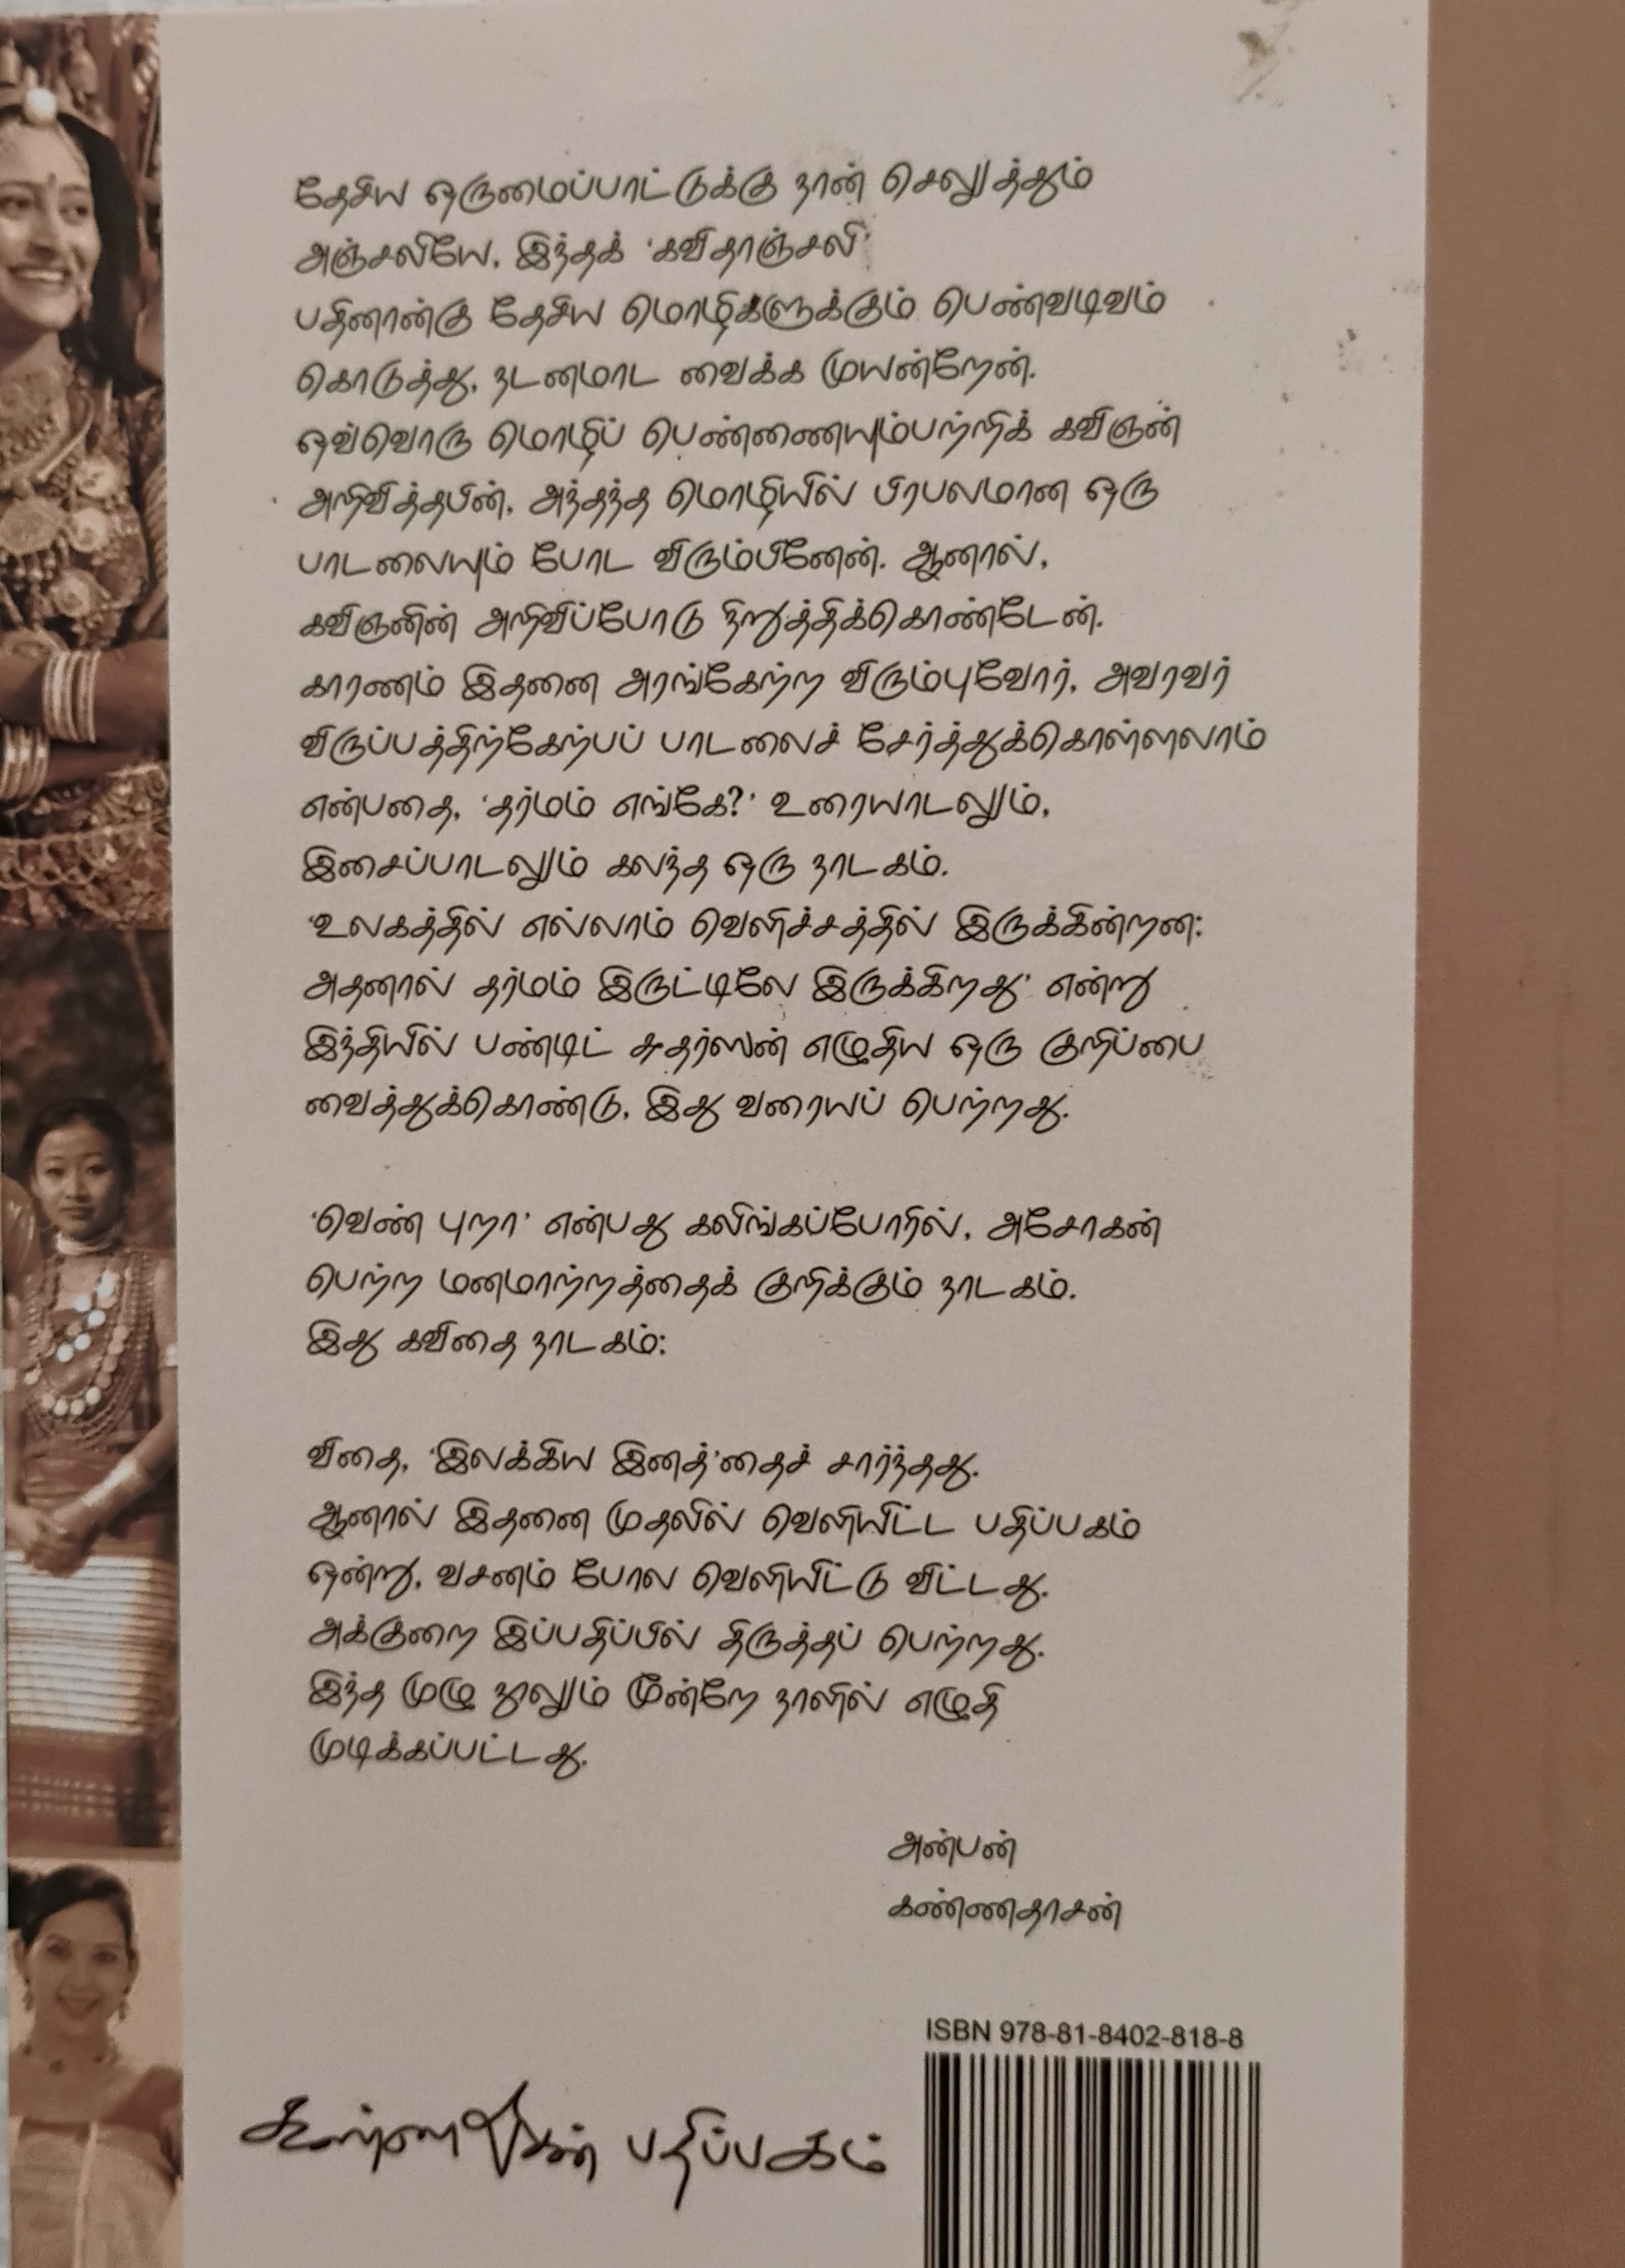 தேசிய ஒருமைப்பாட்டுக்கு நான் செலுத்தும்
அஞ்சலியே, இந்தக் 'கவிதாஞ்சலி'
பதினான்கு தேசிய மொழிகளுக்கும் பெண்வடிவம்
கொடுத்து, நடனமாட வைக்க முயன்றேன்.
ஒவ்வொரு மொழிப் பெண்ணையும்பற்றிக் கவிஞன்
அறிவித்தபின், அந்தந்த மொழியில் பிரபலமான ஒரு
பாடலையும் போட விரும்பினேன். ஆனால்,
கவிஞனின் அறிவிப்போடு நிறுத்திக்கொண்டேன்.
காரணம் இதனை அரங்கேற்ற விரும்புவோர், அவரவர்
விருப்பத்திற்கேற்பப் பாடலைச் சேர்த்துக்கொள்ளலாம்
என்பதை, 'தர்மம் எங்கே?' உரையாடலும்,
இசைப்பாடலும் கலந்த ஒரு நாடகம்.
'உலகத்தில் எல்லாம் வெளிச்சத்தில் இருக்கின்றன;
அதனால் தர்மம் இருட்டிலே இருக்கிறது' என்று
இந்தியில் பண்டிட் சுதர்ஸன் எழுதிய ஒரு குறிப்பை
வைத்துக்கொண்டு, இது வரையப் பெற்றது.
'வெண் புறா' என்பது கலிங்கப்போரில், அசோகன்
பெற்ற மனமாற்றத்தைக் குறிக்கும் நாடகம்.
இது கவிதை நாடகம்;
விதை, 'இலக்கிய இனத்'தைச் சார்ந்தது.
ஆனால் இதனை முதலில் வெளியிட்ட பதிப்பகம்
ஒன்று, வசனம் போல வெளியிட்டு விட்டது.
அக்குறை இப்பதிப்பில் திருத்தப் பெற்றது.
இந்த முழு நூலும் மூன்றே நாளில் எழுதி
முடிக்கப்பட்டது.
அன்பன்
கண்ணதாசன்
ISBN 978-81-8402-818-8
கண்ணதாசன் பதிப்பகம்